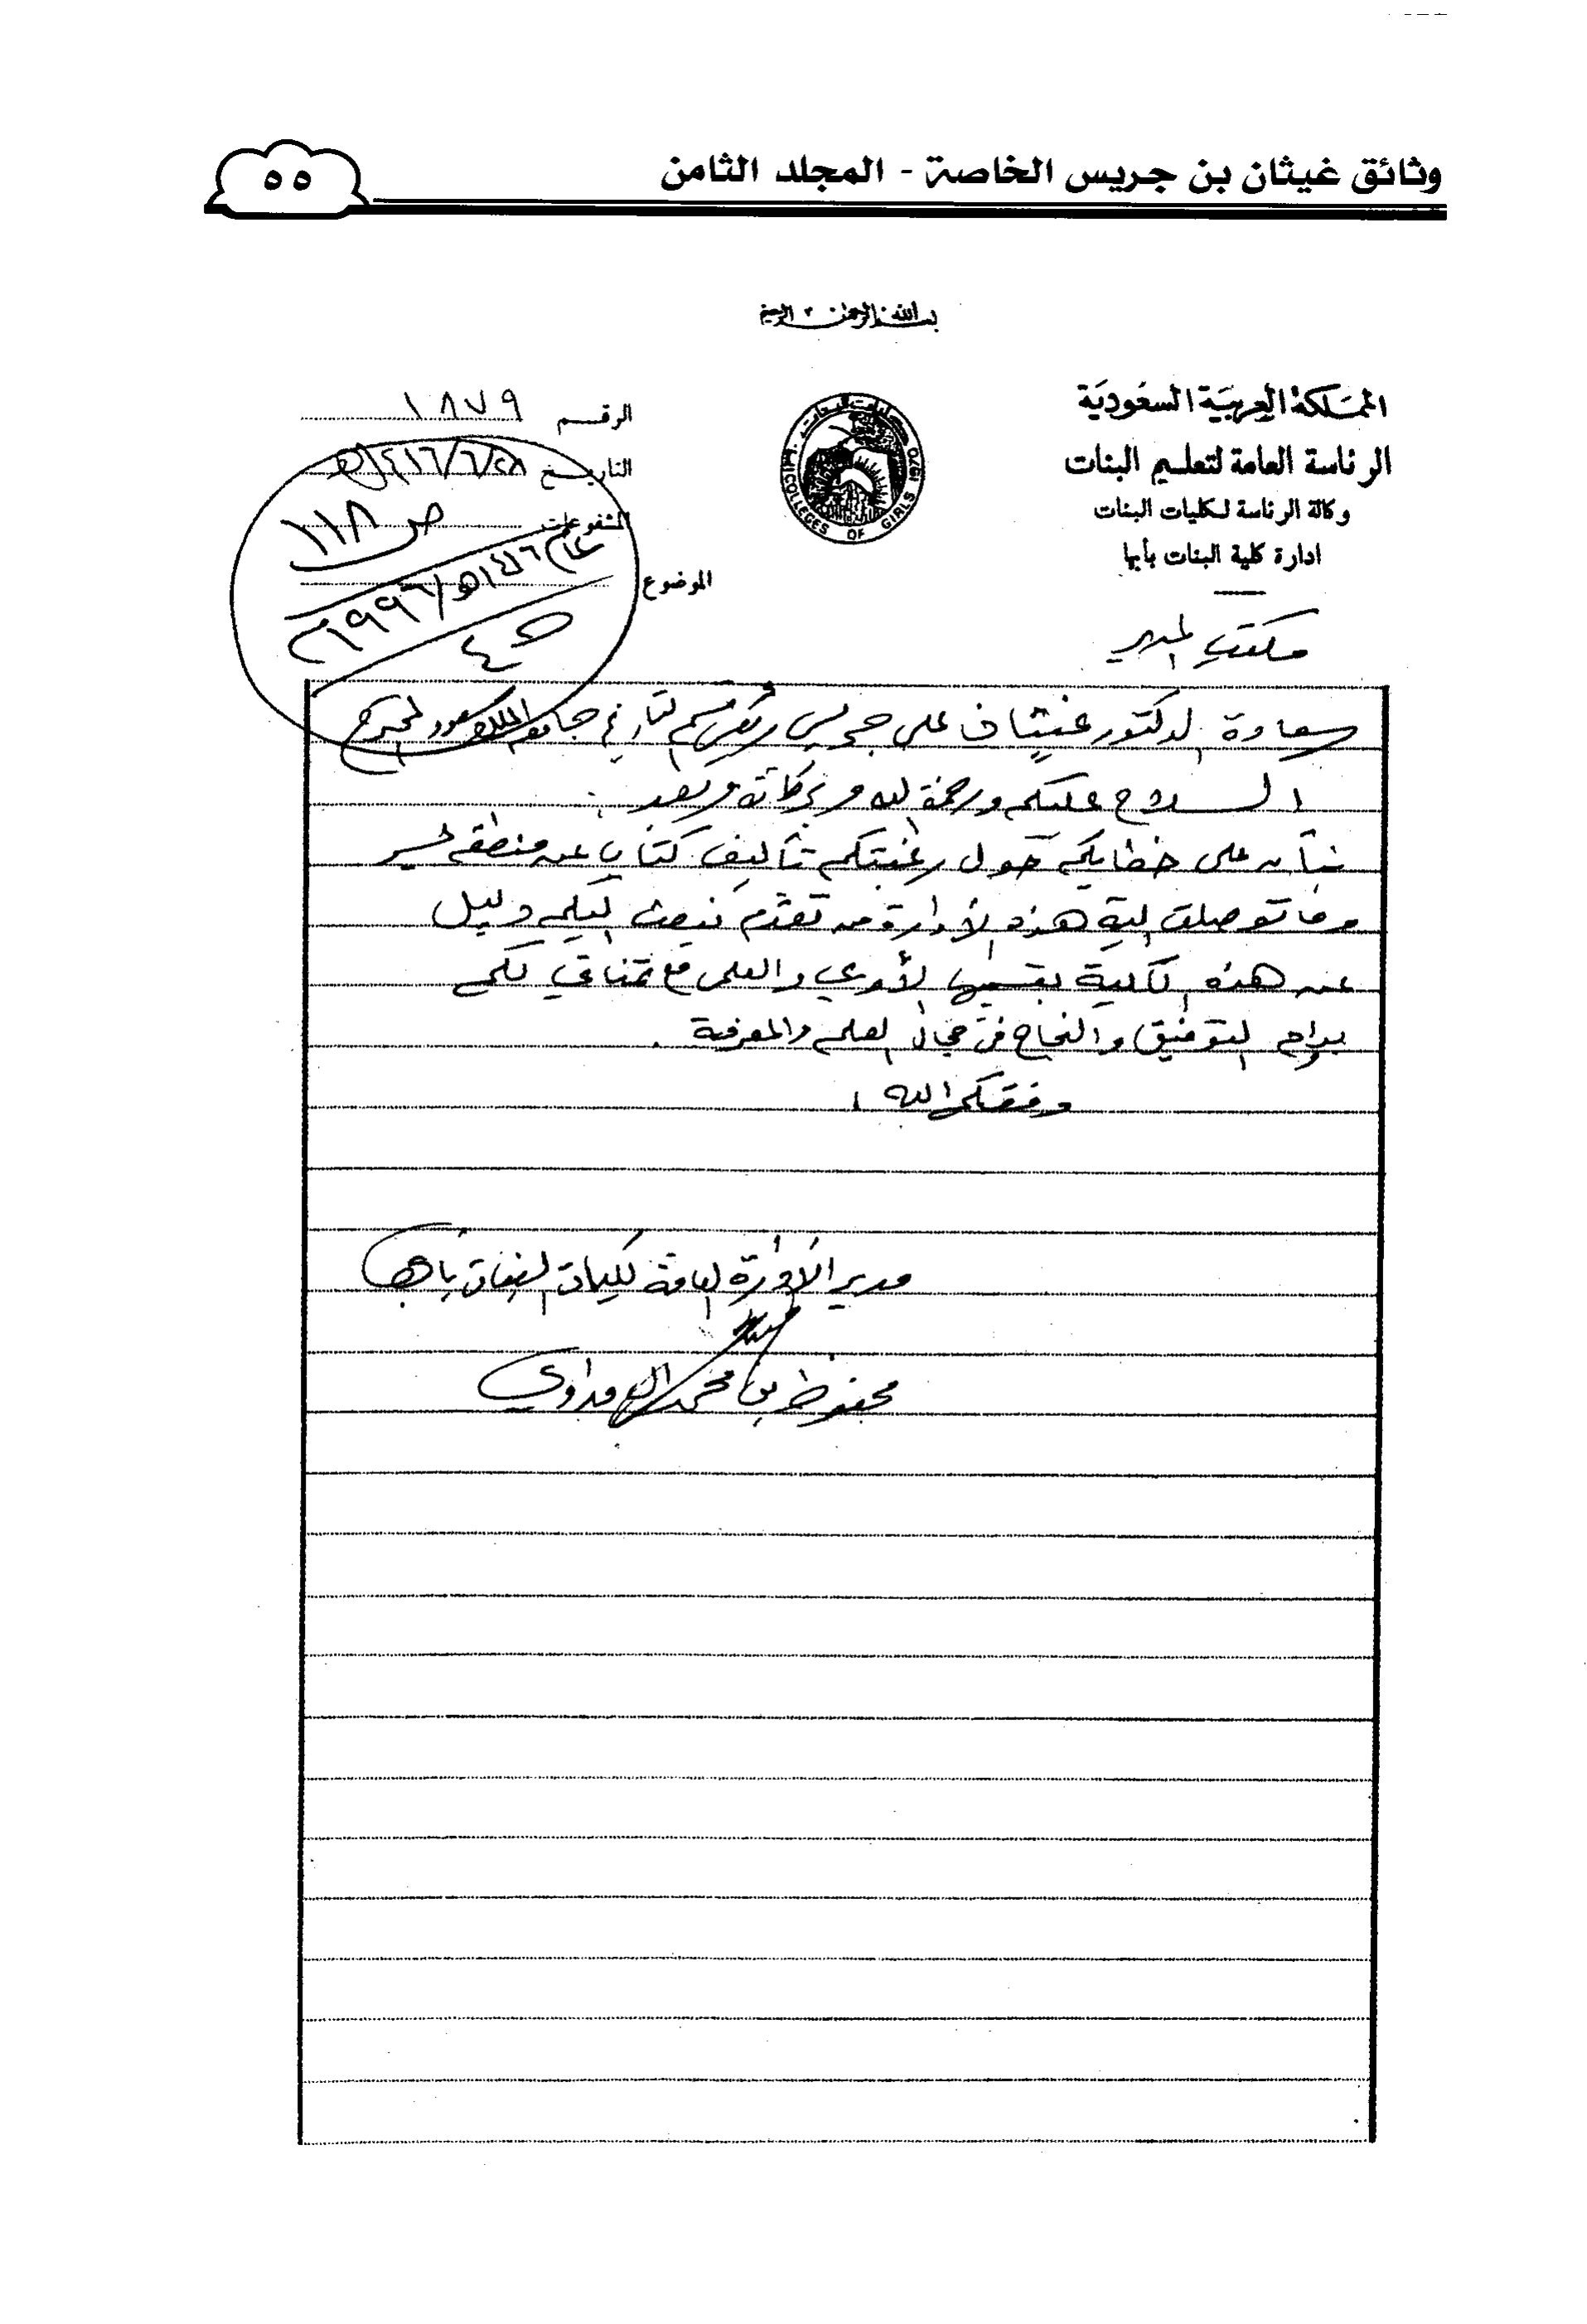 وثائق غيثان بن جريس الخاصة - المجلد الثامن
٥٥
بسم الله الرحمن الرحيم
المملكة العربية السعودية
الرئاسة العامة لتعليم البنات
وكالة الرئاسة لكليات البنات
ادارة كلية البنات بأبها
مكتب المدير
الرقم ١٨٧٩
التاريخ ٢٨/٦/١٤١٦هـ
المشفوعات
الموضوع
ص ١١٨
عام ١٤١٦هـ/١٩٩٦م
كليات البنات
COLLEGES OF GIRLS 1970
سعادة الدكتور غيثان علي جريس رئيس قسم التاريخ جامعة الملك سعود المحترم
السلام عليكم ورحمة الله وبركاته وبعد :
بناء على خطابكم حول رغبتكم تأليف كتاب عن منطقة عسير
وما توصلت إليه هذه الإدارة من تقدم نبعث إليكم دليل
عن هذه الكلية بقسميها الأدبي والعلمي مع تمنياتي لكم
بدوام التوفيق والنجاح في مجال العلم والمعرفة .
وفقكم الله ،
مدير الإدارة العامة لكليات البنات بأبها
محفوظ بن محمد